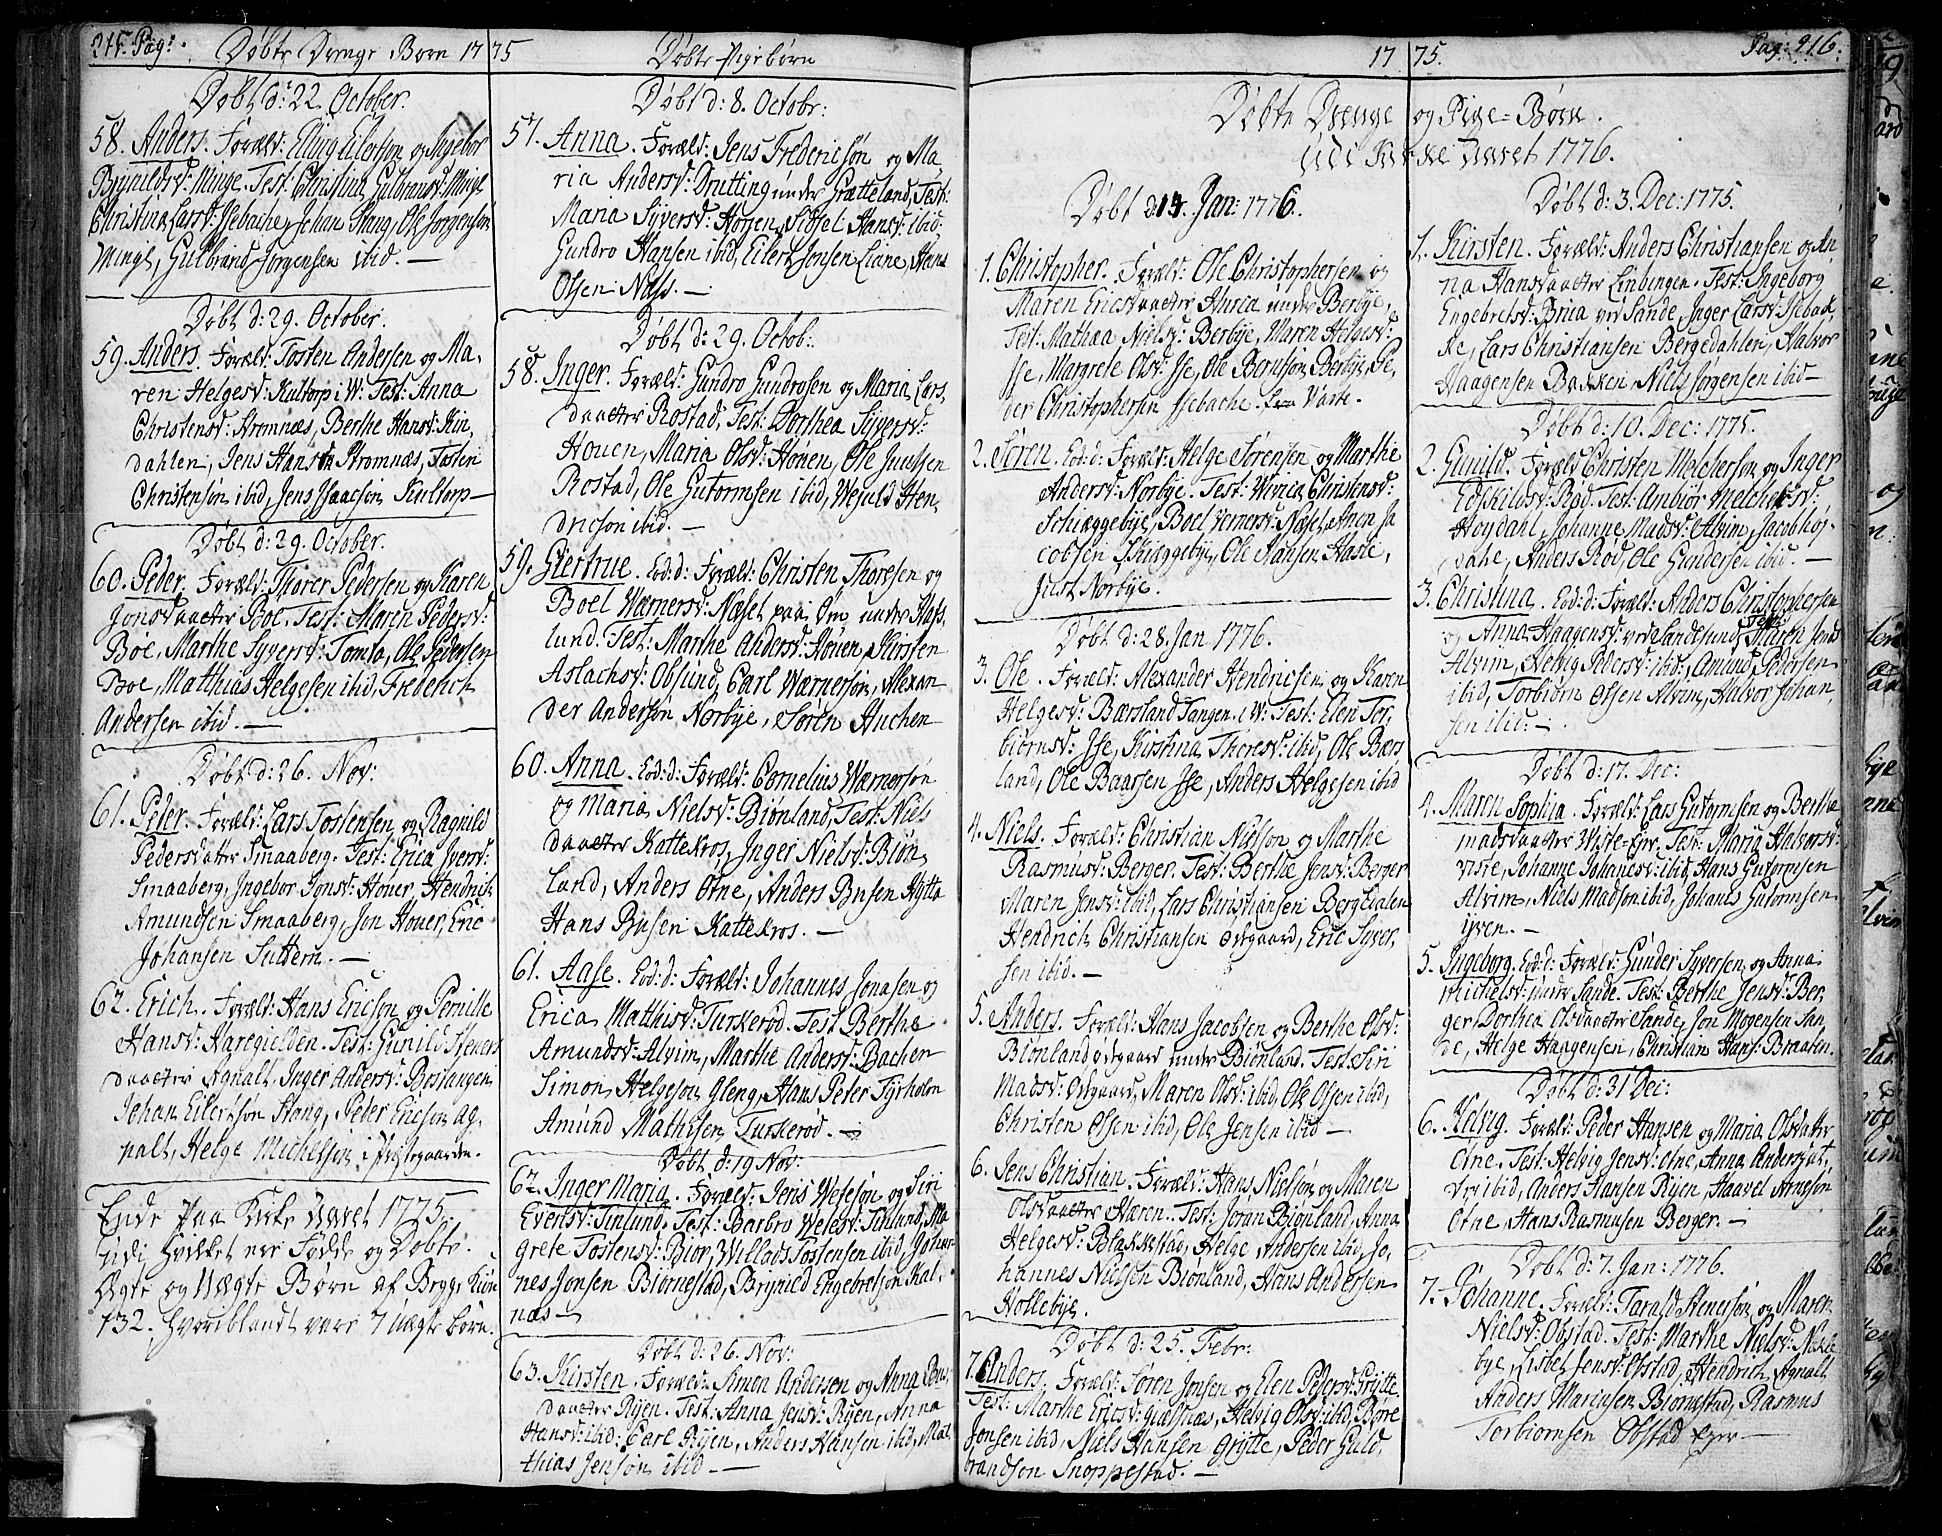 215. Pag:
Døbte Drenge Børn 1775
Døbt d: 22. October.
58. Anders. Foræld: Elling Eilertson og Ingebor
Brynildsd: Minge. Test: Christina Gulbransd: Minge
Christina Larsd: Isebache, Johan Stang, Ole Jørgensøn
Minge, Gulbrand Jørgensen ibid. —
Døbt d: 29. October.
59. Anders. Foræld: Tosten Andersen og Ma-
ren Helgesd: Kultorp i W: Test: Anna
Christensd: Strømnæs, Berthe Hansd: Kin
dahlen, Jens Hansen Strømnæs, Tosten
Christensøn ibid, Jens Isaachsøn Kultorp —
Døbt d: 29. October.
60. Peder. Foræld: Thorer Pedersen og Karen
Jonsdaatter Boe. Test: Maren Pedersd:
Boe, Marthe Syversd: Tomta, Ole Pedersen
Boe, Matthias Helgesen ibid, Frederich
Andersen ibid. —
Døbt d: 26. Nov:
61. Peter. Foræld: Lars Tostensen og Ragnild
Pedersdatter Smaaberg. Test: Erica Iversd:
Smaaberg, Ingebor Jonsd: Houer, Hendrich
Amundsen Smaaberg, Jon Houer, Eric
Johansen Suttern. —
62. Erich. Foræld: Hans Ericson og Pernille
Hansd: Haregielden. Test: Gunild Steners
daatter Agnalt, Inger Andersd: Bestangen
Johan Eilertsøn Stang, Peter Ericson Ag-
nalt, Helge Michelsøn i Præstegaarden.
Ende paa Kirke Aaret 1775.
udi hvilket ere Fødde og Døbte
Ægte og Uægte Børn af Begge Kiøn
132. hvoriblandt vare 7 uægte Børn.
Døbte Pigebørn
Døbt d: 8. Octobr:
57. Anna. Foræld: Jens Fredericsøn og Ma-
ria Andersd: Drutting under Grætteland, Test:
Maria Syversd: Houen, Sidsel Hansd: ibid:
Gundro Hansen ibid, Eilert Jonsen Liane, Hans
Olsen Næss. —
Døbt d: 29. Octob:
58. Inger. Foræld: Gundro Gundrosen og Maria Lars-
daatter Rostad, Test: Dorthea Syversd:
Houen, Maria Olsd: Houen, Ole Juulsen
Rostad, Ole Gutormsen ibid, Wejuld Hen-
dricson ibid. —
59. Giertrue. Eod:d: Foræld: Christen Thoresen og
Boel Wærnersd: Næset paa Øen under Haf-
lund. Test: Marthe Andersd: Houen, Kirsten
Aslachsd: Obsund, Carl Wærnersøn, Alexan
der Andersøn Norbye, Søren Huchen —
60. Anna. Eod:d: Foræld: Cornelius Wærnersøn
og Maria Nielsd: Biønland, Test: Niels
daatter Kattekros, Inger Nielsd: Biøn
land, Anders Otne, Anders Busen Hytta
Hans Busen Kattekros. —
61. Aase. Eod:d: Foræld: Johannes Jonasen og
Erica Matthisd: Turkerød. Test: Berthe
Amundsd: Alvim, Marthe Andersd: Bachen
Simon Helgeson Gleng, Hans Peter Tyrholm
Amund Mathisen Turkerød. —
Døbt d: 19 Nov:
62. Inger Maria. Foræld: Jens Wetesøn og Siri
Evensd: Tinlund. Test: Barbro Wetesd: Tinlund, Ma
grete Tostensd: Biør, Willads Tostensen ibid, Johan
nes Jonsen Biørnestad, Brynild Engebretson Kal-
næs —
Døbt d: 26. Nov:
63. Kirsten. Foræld: Simon Andersen og Anna
daatter Ryen. Test: Anna Jensd: Ryen, Anna
Hansd: ibid: Carl Ryen, Anders Hansen ibid, Mat
thias Jensøn ibid —
1775.
Pag: 216.
Døbte Drenge og Pige-Børn.
udi Kirke Aaret 1776.
Døbt d: 14. Jan: 1776.
1. Christopher. Foræld: Ole Christophersen og
Maren Ericsdaatter Auria under Berbye,
Test: Mathea Nielsd: Berbye, Maren Helgesd:
Ise, Margrete Olsd: Ise, Ole Bentsøn Berbye, Pe
der Christophersen Isebache. Varte.
2. Søren. Eod:d: Foræld: Helge Sørensen og Marthe
Andersd: Norbye. Test: Werica Christensd:
Schiæggebye, Boel Wernersd: Næset, Anon Ja
cobsen Skiæggebye, Ole Hansen Haste,
Just Norbye.
Døbt d: 28. Jan 1776.
3. Ole. Foræld: Alexander Hendricsen og Karen
Helgesd: Bærsland Tangen. i W: Test: Elen Tor-
biørnsd: Ise, Kirstina Thoresd: ibid, Ole Bærs
land, Ole Baarsen Ise, Anders Helgesen ibid
4. Niels. Foræld: Christian Nielson og Marthe
Rasmusd: Berger. Test: Berthe Jensd: Berger
Maren Jensd: ibid, Lars Christiansen Bergedalen
Hendrich Christiansen Ødegaard, Eric Syver-
sen ibid. —
5. Anders. Foræld: Hans Jacobsen og Berthe Olsd:
Biønland, Ødegaard under Biønland. Test: Siri
Madsd: Ødegaard, Maren Olsd: ibid, Ole Olsen ibid,
Christen Olsen ibid, Ole Jensen ibid —
6. Jens Christian. Foræld: Hans Nielsøn og Maren
Olsdaatter Hæren. Test: Joran Biønland, Anna
Helgesd: Blakkestad, Helge Andersen ibid, Jo
hannes Nielsen Biønland, Hans Andersen
Hollebye.
Døbt d: 25. Febr:
7. Anders. Foræld: Søren Jonsen og Elen Pedersd: Grytte
Test: Marthe Ericsd: Giælsnæs, Helvig Olsd: ibid, Børe
Jonsen ibid, Niels Hansen Grytte, Peder Guld
brandsøn Snoppestad. —
Døbt d: 3. Dec: 1775.
1. Kirsten. Foræld: Anders Christiansen og An-
na Hansdaatter Linbingen. Test: Ingeborg
Engebretsd: Brua ved Sande, Inger Larsd: Isebak
ke, Lars Christiansen Bergedahlen, Halvor
Haagensen Bakken, Niels Jørgensen ibid —
Døbt d: 10. Dec: 1775.
2. Gunild. Foræld: Christen Melcherson og Inger
Edskildsd: Rød. Test: Ambiør Melchersd:
Høydahl, Johanne Madsd: Alvim, Jacob Høy
dahl, Anders Rød, Ole Gundersen ibid. —
3. Christina. Eod:d: Foræld: Anders Christophersen
og Anna Haagensd: ved Sandesund, Test: Maren Jensd:
Alvim, Helvig Pedersd: ibid, Amund Pedersen
ibid, Torbiørn Olsen Alvim, Halvor Johan
sen ibid: —
Døbt d: 17. Dec:
4. Maren Sophia. Foræld: Lars Gutormsen og Berthe
Madsdaatter Wiste-Eyer. Test: Maria Halvorsd:
Viste, Johanne Johanesd: ibid, Hans Gutormsen
Alvim, Niels Madsøn ibid, Johanes Gutormsen
Yven. —
5. Ingeborg. Eod:d: Foræld: Gunder Syversen og Anna
Michelsd: under Sande. Test: Berthe Jensd: Ber
ger, Dorthea Olsdaatter Sande, Jon Mogensen San
de, Helge Haagensen, Christian Hans: Braaten.
Døbt d: 31 Dec:
6. Helvig. Foræld: Peder Hansen og Maria Olsdatter
Otne. Test: Helvig Jensd: Otne, Anna Andersdat
ter ibid, Anders Hansen Ryen, Haavel Arneson
Otne, Hans Rasmusen Berger. —
Døbt d: 7. Jan: 1776.
7. Johanne. Foræld: Tarald Stenesøn og Maren
Nielsd: Obstad. Test: Marthe Nielsd: Nakke
bye, Lisbet Jensd: Obstad, Hendrich Agnalt
Anders Marinsen Biørnestad, Rasmus
Torbiørnsen Obstad Eyer. —